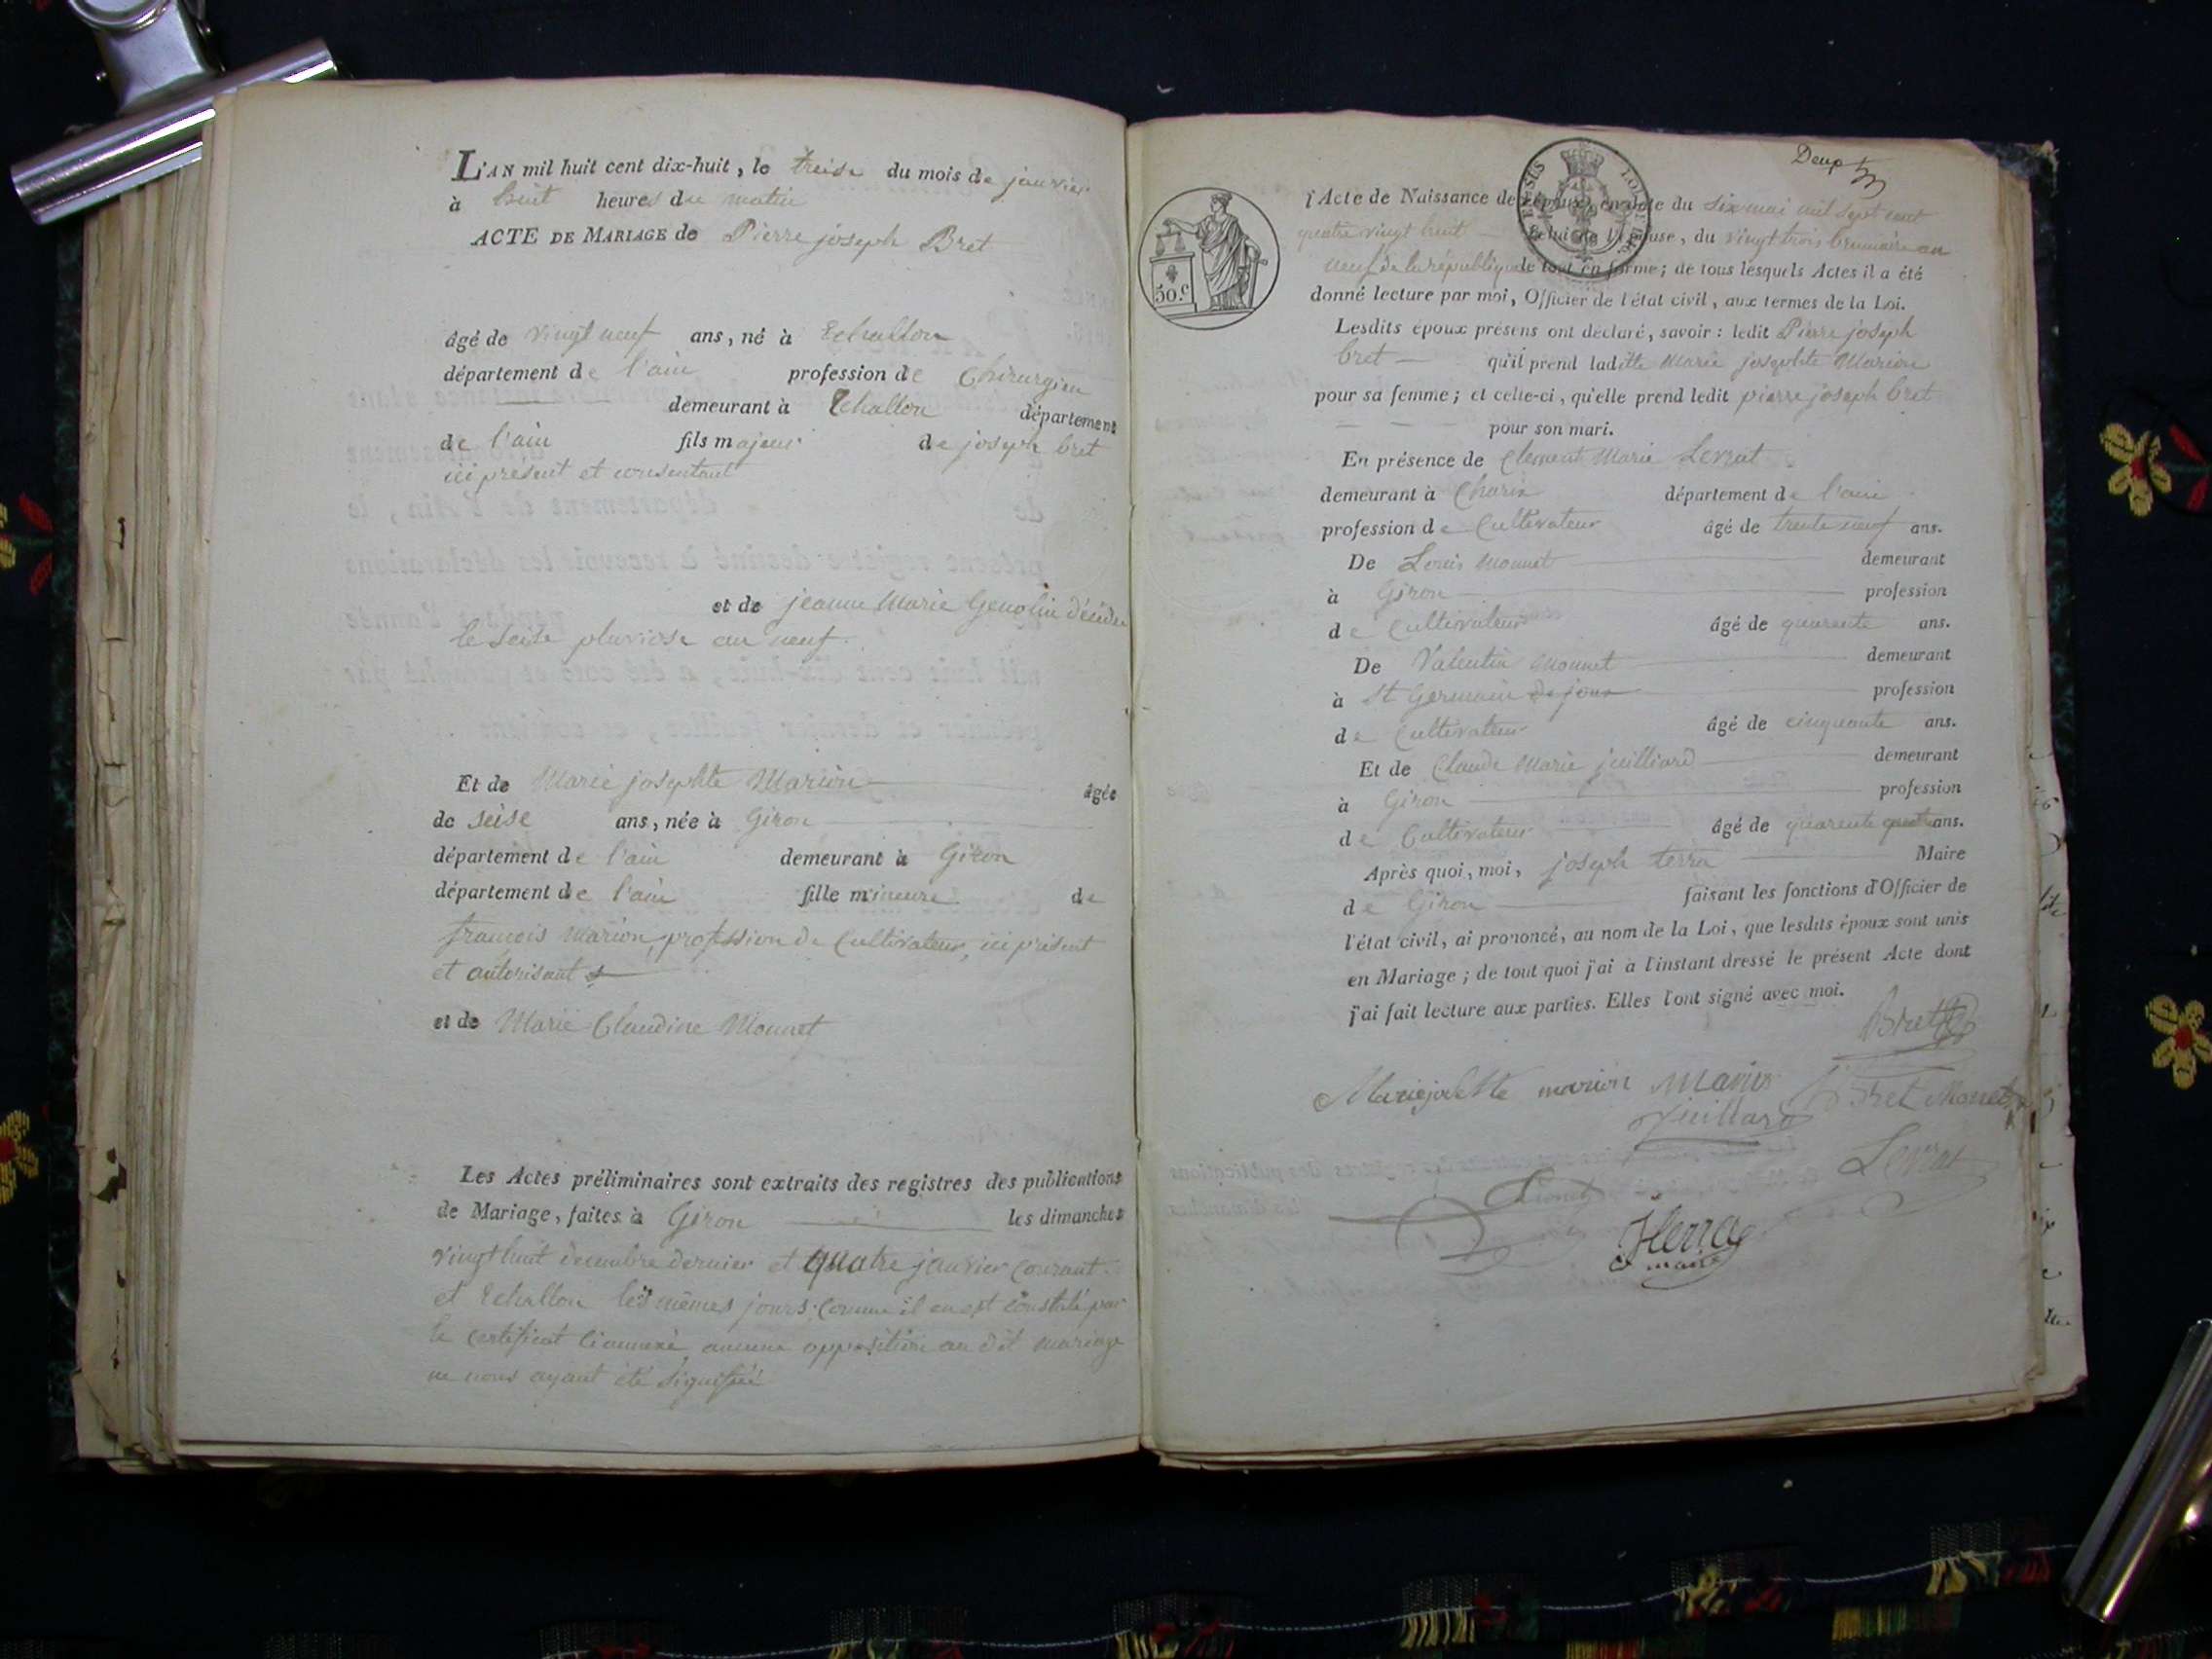 L'AN mil huit cent dix-huit, le treise du mois de janvier
à huit heures du matin
ACTE DE MARIAGE de Pierre joseph Bret
âgé de vingt neuf ans, né à Echallon
département de l'ain profession de Chirurgien
demeurant à Echallon département
de l'ain fils majeur de joseph bret
ici présent et consentant
et de jeanne Marie Genolin décédée
le seise pluviose an neuf.
Et de Marie josephte Marion âgée
de seise ans, née à Giron
département de l'ain demeurant à Giron
département de l'ain fille mineure de
françois Marion, profession de Cultivateur, ici présent
et autorisant
et de Marie Claudine Monnet
Les Actes préliminaires sont extraits des registres des publications
de Mariage, faites à Giron les dimanches
vingt huit decembre dernier et quatre janvier courant
et Echallon les mêmes jours comme il en est constaté par
le certificat ci annexé, aucune opposition au dit mariage
ne nous ayant été signifiée
Deux
50.c
l'Acte de Naissance de l'époux, en date du six mai mil sept cent
quatre vingt huit Celui de l'épouse, du vingt trois brumaire an
neuf de la république le tout en forme; de tous lesquels Actes il a été
donné lecture par moi, Officier de l'état civil, aux termes de la Loi.
Lesdits époux présens ont déclaré, savoir: ledit Pierre joseph
bret qu'il prend ladite Marie josephte Marion
pour sa femme; et celle-ci, qu'elle prend ledit pierre joseph bret
pour son mari.
En présence de Clement Marie Levrat
demeurant à Charix département de l'ain
profession de Cultivateur âgé de trente neuf ans.
De Louis Monnet demeurant
à Giron profession
de Cultivateur âgé de quarante ans.
De Valentin Monnet demeurant
à St Germain de joux profession
de Cultivateur âgé de cinquante ans.
Et de Claude Marie juilliard demeurant
à Giron profession
de Cultivateur âgé de quarente quatre ans.
Après quoi, moi, joseph terra Maire
de Giron faisant les fonctions d'Officier de
l'état civil, ai prononcé, au nom de la Loi, que lesdits époux sont unis
en Mariage; de tout quoi j'ai à l'instant dressé le présent Acte dont
j'ai fait lecture aux parties. Elles l'ont signé avec moi.
Bret
Marie josette marion Marion Bret Monnet
Juillard
Levrat
Monet
Terra
maire